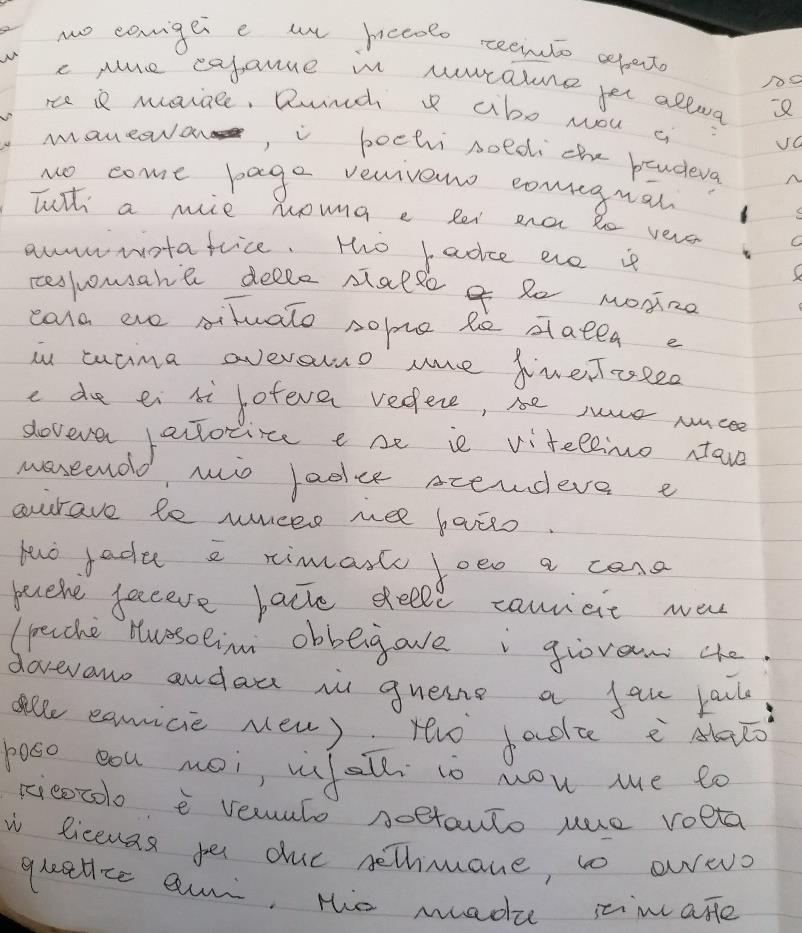 no conigli e un piccolo recinto aperto
e una capanna in muratura per alleva
re il maiale. Quindi il cibo non ci
mancava, i pochi soldi che prendeva
no come paga venivano consegnati
tutti a mia nonna e lei era la vera
amministatrice. Mio padre era il
responsabile della stalla la nostra
casa era situato sopra la stalla e
in cucina avevamo una finestrella
e da lì si poteva vedere, se una mucca
doveva partorire e se il vitellino stava
nascendo, mio padre scendeva e
aiutava la mucca nel parto.
Mio padre è rimasto poco a casa
perchè faceva parte delle camicie nere
(perchè Mussolini obbligava i giovani che
dovevano andare in guerra a far parte
alle camicie nere). Mio padre è stato
poco con noi, infatti io non me lo
ricordo è venuto soltanto una volta
in licenza per due settimane, io avevo
quattro anni. Mia madre rimaste
so
il
va